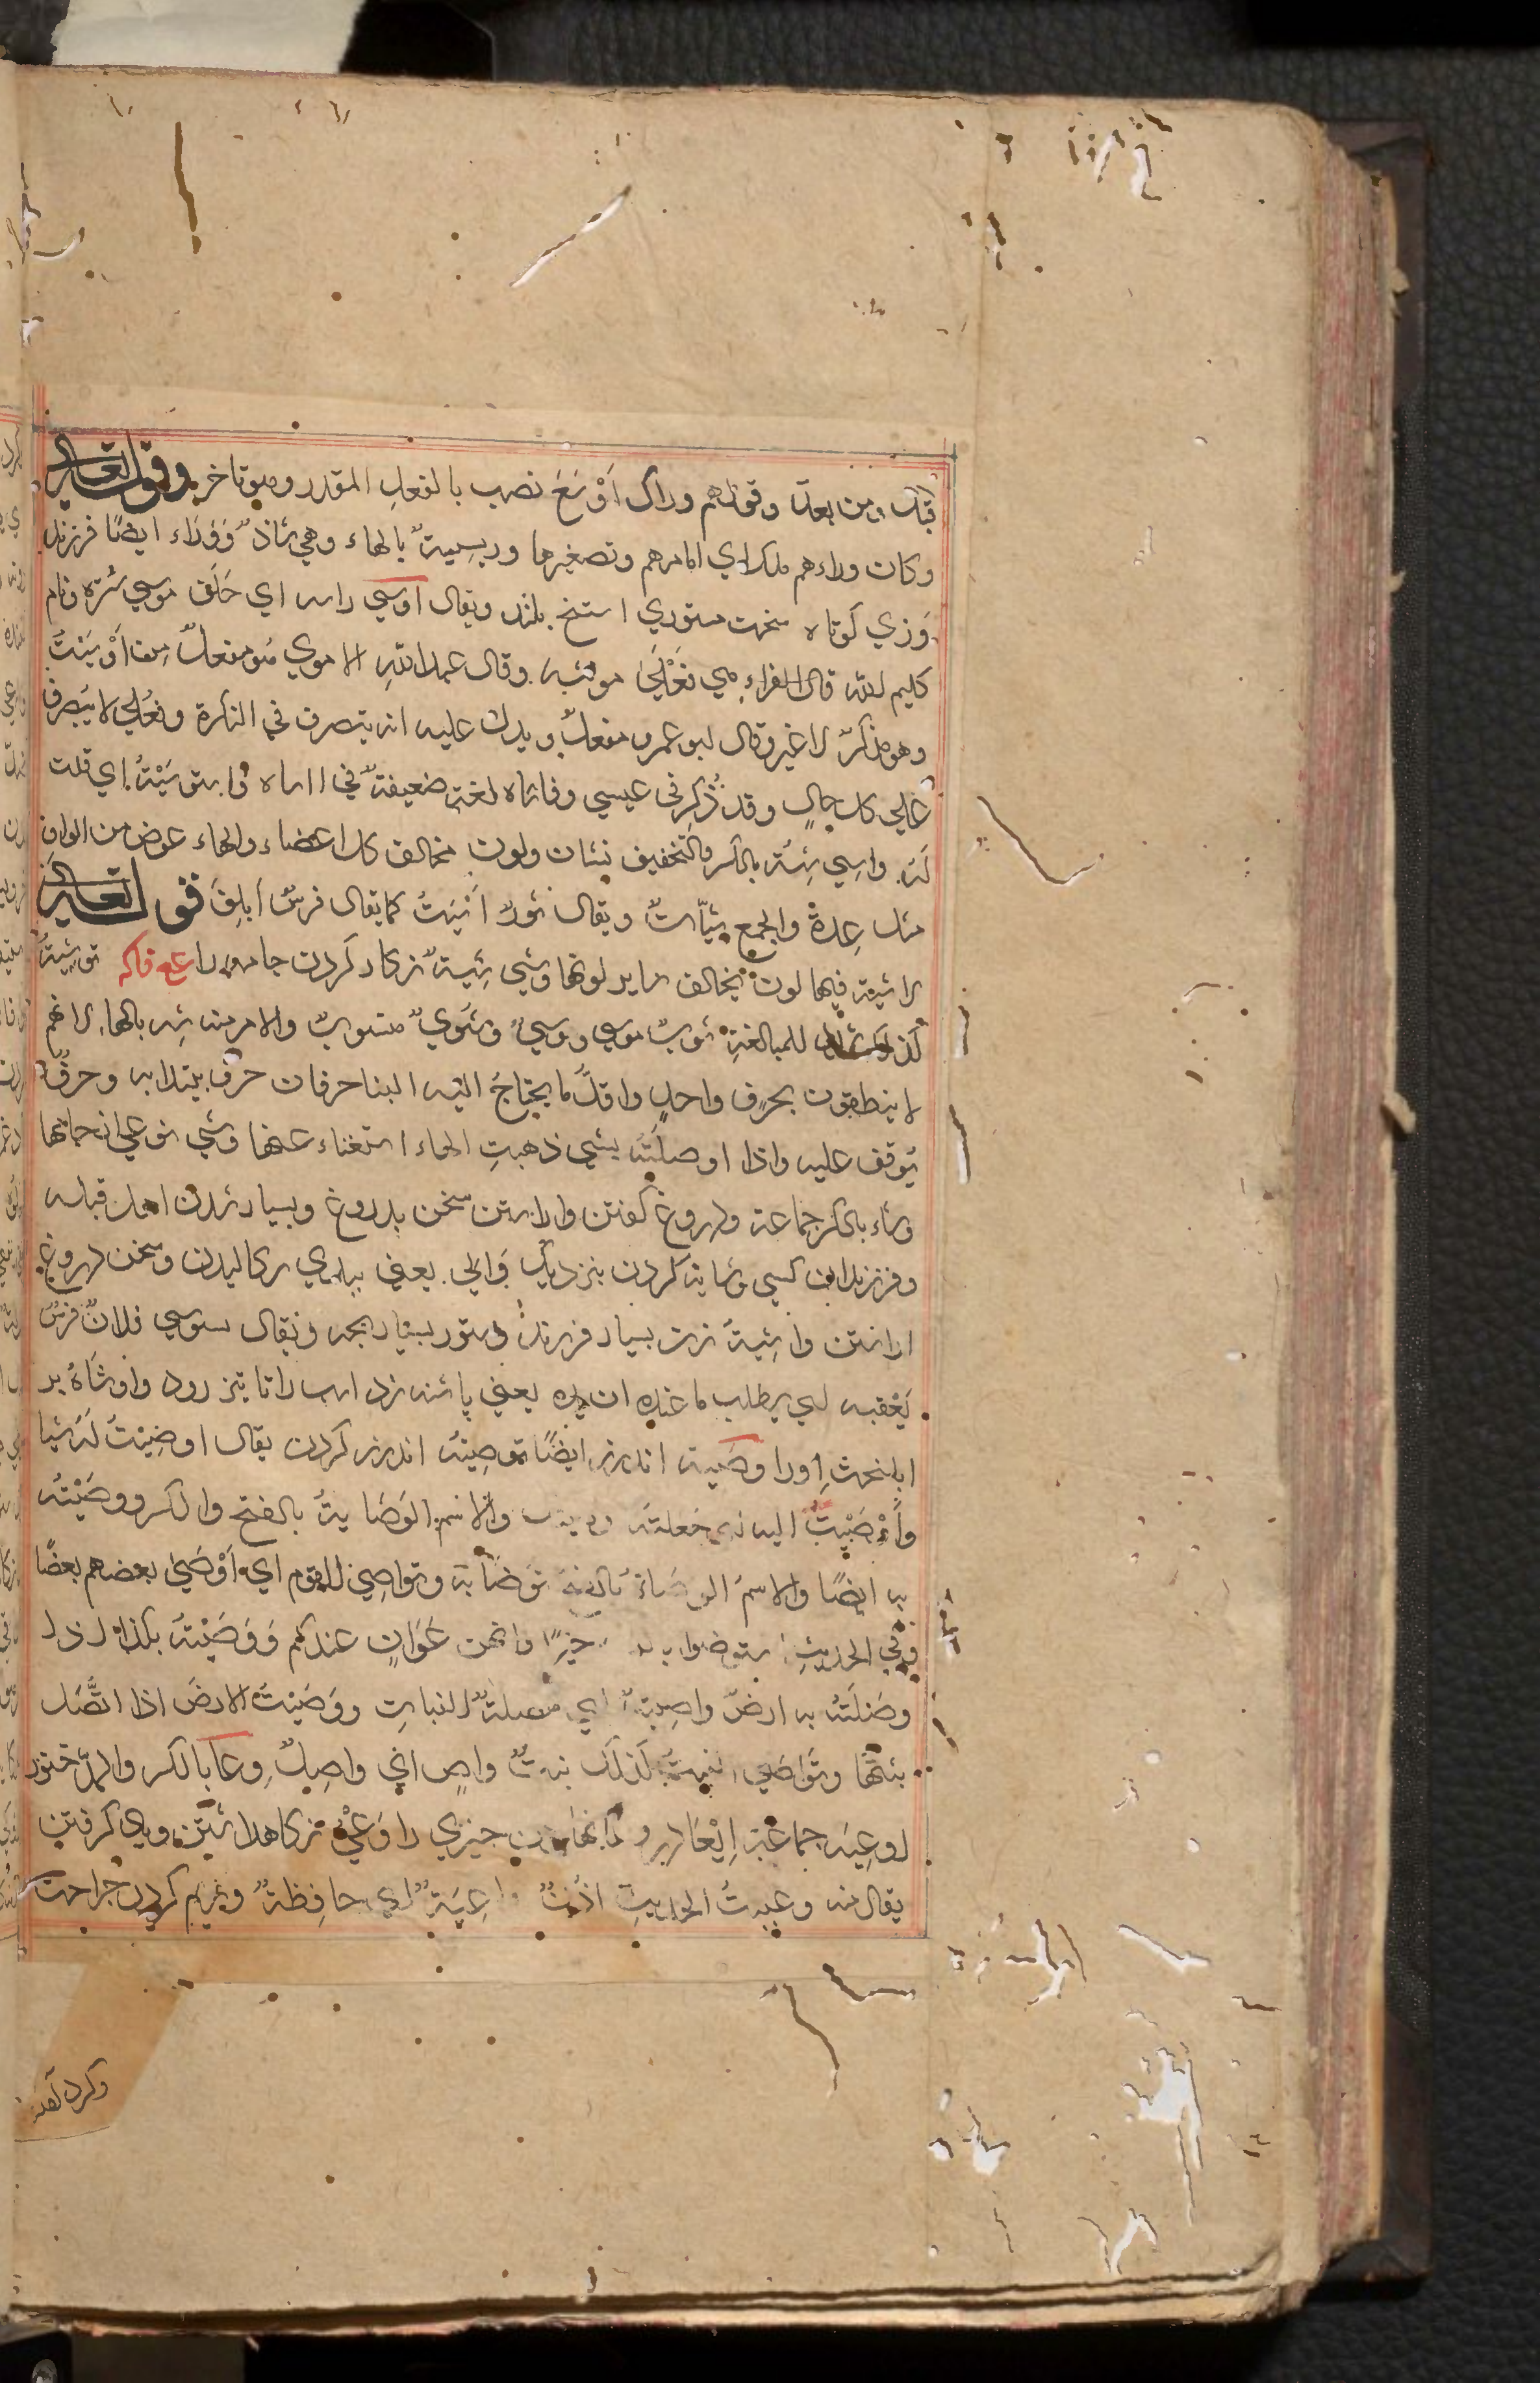 قبل ومن بعد وقولهم وراك اَوْسَعَ نصب بالفعلِ المقدر وهو تاخر وقوله تعالي
وكان وراءهم ملك اي امامهم وتصغيرها وريية بالهاء وهي شاذ وَوَرَاء ايضًا فرزند
وَزي كوتاه سخت ستوري استخ بلند ويقال اوسي راسه اي حَلَق موسي سُتره ونام
كليم الله قال الفراء هي فُعْلَي مونثه وقال عبدالله الاموي هو مفعلٌ من اَوْسَيْتُ
وهو مذكرٌ لا غير وقال ابو عمرو مفعلٌ ويدل عليه انه يتصرف في النكرة وفُعْلي لا يتصرف
علي كل حالٍ وقد ذُكر في عيسي وفاتاه لغةٌ ضعيفةٌ في اساه واستوسَيْتُه اي قلت
لَه واسِي شِيَة بالكسر والتخفيف نشان ولون مخالف كل اعضاء والهاء عوض من الواو
مثل عِدة والجمع شِيَاتٌ ويقال ثورٌ اَشْيَهُ كما يقال فرسٌ اَبلق قوله تعالي
لا شية فيها لون يخالف ساير لونها وشي شِيَة نكار كردن جامه را ع ع فاكه توشِيَةٌ
كذلك للمبالغةِ ثوبٌ موشي ووشيٌ وشَوِيٌ منسوب والامر منه شِه بالهاء لا نهم
لا ينطقون بحرفٍ واحدٍ واقلّ ما يحتاجُ اليه البنا حرفان حرف يبتدا به وحرفٌ
يُوقف عليه واذا اوصلتَه بشي ذهبتِ الهاء استغناء عنها وشي نوعي از جامها
وشاء بالكسر جماعة ودروغ كفتن واراستن سخن بدروغ وبسيار شدن اهل قبيله
وفرزندان كسي وشاية كردن بنزديك والي يعني ببدي سكاليدن وسخن دروغ
اراستن واشِيَة زن بسيار فرزند وستور بسيار بچه ويقال يستوشي فلانٌ فرسَ
بَعْقبه اي يطلب ما عنده ان يزيده يعني پاشنه زد اسب را تا تيز رود واوشَاهُ بر
ابلخت اورا وصَية اندرز ايضًا توصِيَة اندرز كردن يقال اوصَيْتُ لَه شيا
وأَوْصَيْتُ اليه اي جعلتَه وصيك والاسم الوَصَايةُ بالفتح والكسر ووصَيْتُه
به ايضًا والاسم الوصَاة بالفتح تَوصَاية وتواصي القوم اي اَوْصَي بعضهم بعضًا
وفي الحديث استوصوا بالنساء خيرًا فانهن عَوَانٍ عندكم وَوَصَيْتُه بكذا اذا
وصَلتُه به ارضٌ واصِيةٌ اي متصلةُ النباتِ ووَصَيْتُ الارضَ اذا اتَّصَل
نبتُها وتَوَاصَي النبتُ كذلك نبتٌ واصٍ اي واصِلٌ وعا بالكسر والمدّ خنور
اوعِيَه جماعة اِيْعَا در وعا نهادن چيزي را وَعْيٌ نكاه داشتن وياد كرفتن
يقال منه وعيتُ الحديث اذنٌ واعِيَةٌ اي حافِظةٌ وفراهم كردن جراحت
وكرد آمدن